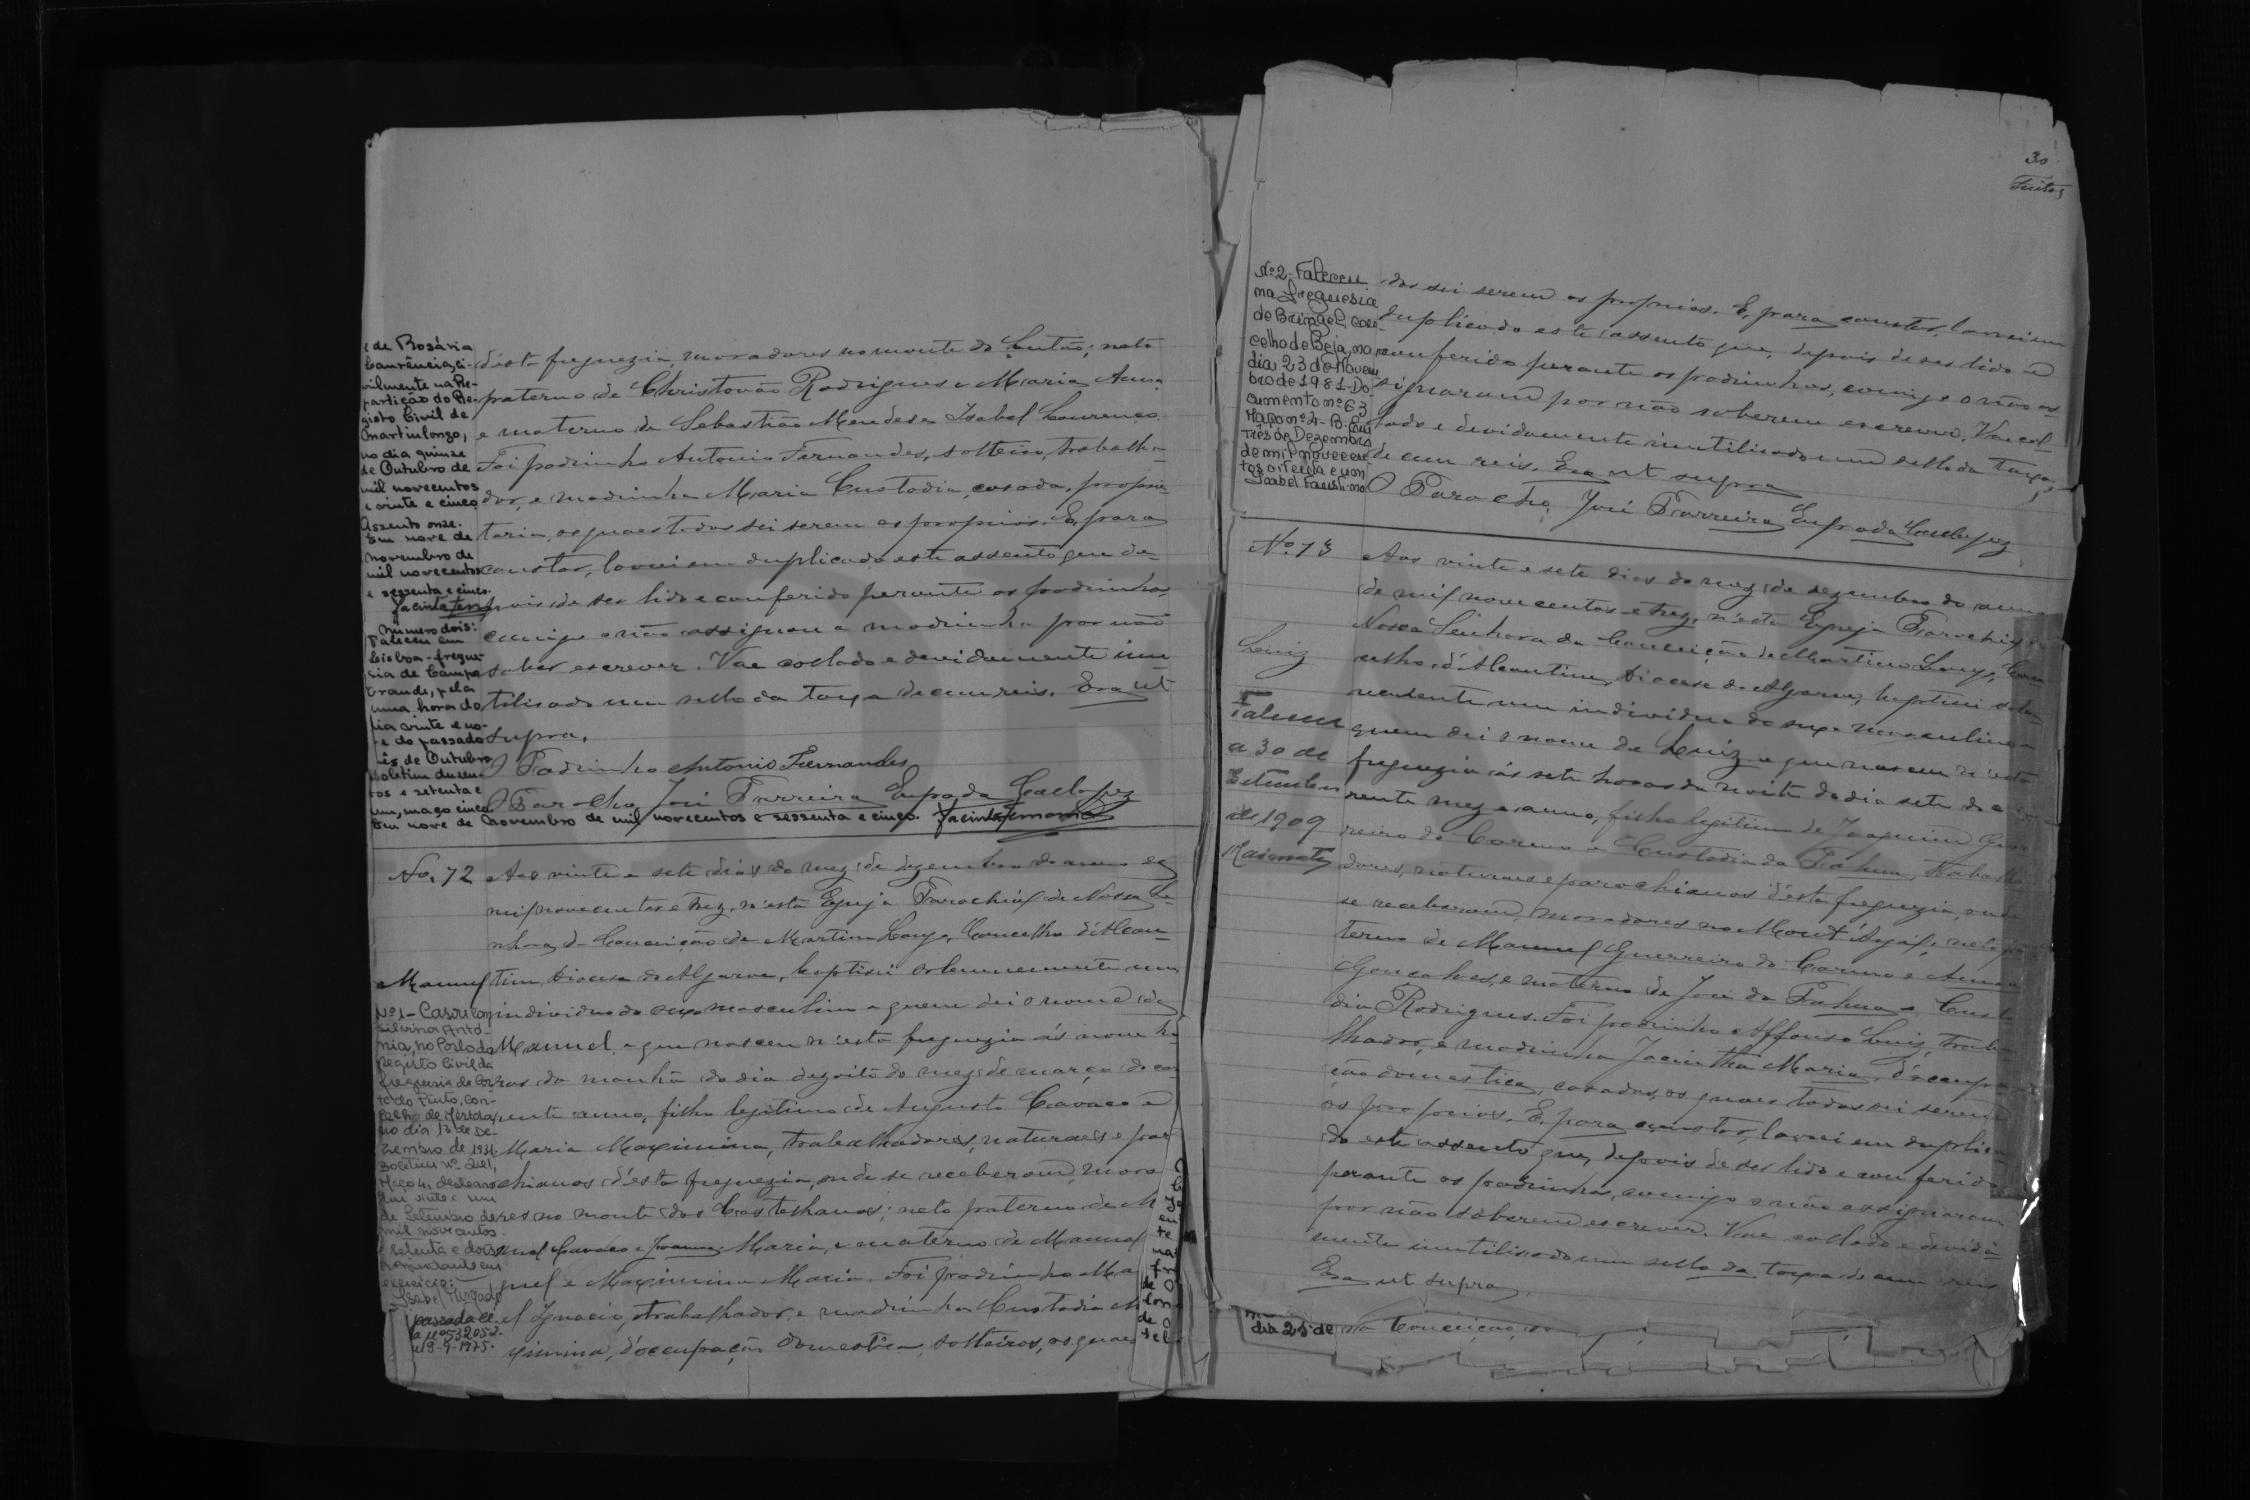 e de Rosária
Lourência, ci-
vilmente na Re-
partição do Re-
gisto Civil de
Martinlongo,
no dia quinze
de Outubro de
mil novecentos
e vinte e cinco
Assento onze.
Em nove de
novembro de
mil novecentos
e sessenta e cinco.
Número dois:
Faleceu em
Lisboa - fregue-
sia de Campo
Grande, pela
uma hora do
dia vinte e no-
ve do passado
mês de Outubro
Boletim duzen-
tos e setenta e
um, maço cinco
Em nove de Novembro de mil novecentos e sessenta e cinco.
d'esta freguezia, moradores no monte do ; neto
paterno de Christovão Rodrigues e Maria Anna
e materno de Sebastião Mendes e Isabel Lourenço.
Foi padrinho Antonio Fernandes, solteiro, trabalha-
dor, e madrinha Maria Custodia, casada, proprie-
taria, os quaes todos sei serem os proprios. E, para
constar, lavrei em duplicado este assento que de-
pois de ser lido e conferido perante os padrinhos
comigo o não assignou a madrinha por não
saber escrever. Vae collado e devidamente inu-
tilisado um sello da taxa de cem reis. Era ut
supra.
O Padrinho Antonio Fernandes
O Parocho José Farreira Espada
No. 72
Manuel
Nº 1 - Casou com
Silvina Antó-
nia, no Posto do
Registo Civil da
freguesia de Cor-
te do Pinto, con-
celho de Mértola,
no dia 13 de De-
zembro de 1931.
Boletim nº 221,
Maço 4, deste ano
Em vinte e um
de Setembro de
mil novecentos
e setenta e dois
passada cé
a nº 532052.
19-9-1975.
Aos vinte e sete dias do mez de dezembro do anno de
mil novecentos e trez, n'esta Egreja Parochial de Nossa Se-
nhora da Conceição de Martim Longo, Concelho d'Alcou-
tim, Diocese do Algarve, baptisei solemnemente um
individuo do sexo masculino a quem dei o nome de
Manuel, e que nasceu n'esta freguezia ás nove ho-
ras da manhã do dia dezoito do mez de março do cor-
rente anno, filho legitimo de Augusto Cavaco e
Maria Maximina, trabalhadores, naturaes e paro-
chianos d'esta freguezia, onde se receberam, morado-
res no monte dos Castelhanos; neto paterno de Ma-
nuel Cavaco e Joanna Maria, e materno de Manuel
e Maximina Maria. Foi padrinho Ma-
el Ignacio, trabalhador, e madrinha Custodia Ma-
ximina, d'occupação domestica, solteiros, os quaes
30
Trinta
Nº 2 - Faleceu
na freguesia
de Beringel, con-
celho de Beja, no
dia 23 de Novem-
bro de 1981 - Do-
cumento nº 63
Maço nº 4-B. Em
Três de Dezembro
de mil novecen-
tos oitenta e um
Isabel Faustino
dos sei serem os proprios. E, para constar, lavrei em
duplicado este assento que, depois de ser lido e
conferido perante os padrinhos, comigo o não as-
signaram por não saberem escrever. Vae col-
lado e devidamente inutilisado um sello da taxa
de cem reis. Era ut supra
O Parocho, José Farreira Espada
No. 73
Luiz
Faleceu
a 30 de
Setembro
de 1909
Aos vinte e sete dias do mez de dezembro do anno
de mil novecentos e trez, n'esta Egreja Parochial de
Nossa Senhora da Conceição de Martim Longo, Con-
celho d'Alcoutim, Diocese do Algarve, baptisei solem-
nemente um individuo do sexo masculino a
quem dei o nome de Luiz e que nasceu n'esta
freguezia ás sete horas da noite do dia sete do cor-
rente mez e anno, filho legitimo de Joaquim Guer-
reiro do Carmo e Custodia da Palma, trabalha-
dores, naturaes e parochianos d'esta freguezia, onde
se receberam, moradores no Mont'Argil; neto pa-
terno de Manuel Guerreiro do Carmo e Anna
Gonçalves, e materno de José da Palma e Custo-
dia Rodrigues. Foi padrinho Affonso Luiz, traba-
lhador, e madrinha Jacintha Maria, d'occupa-
ção domestica, casados, os quaes todos sei serem
os proprios. E, para constar, lavrei em duplica-
do este assento que, depois de ser lido e conferido
perante os padrinhos, comigo o não assignaram
por não saberem escrever. Vae collado e devida-
mente inutilisado um sello da taxa de cem reis
Era ut supra.
dia 25 de
da Conceição